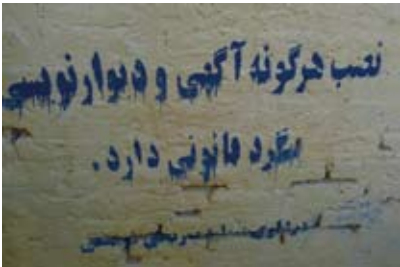 نصب هرگونه آگهی و دیوارنویسی
پیگرد قانونی دارد.